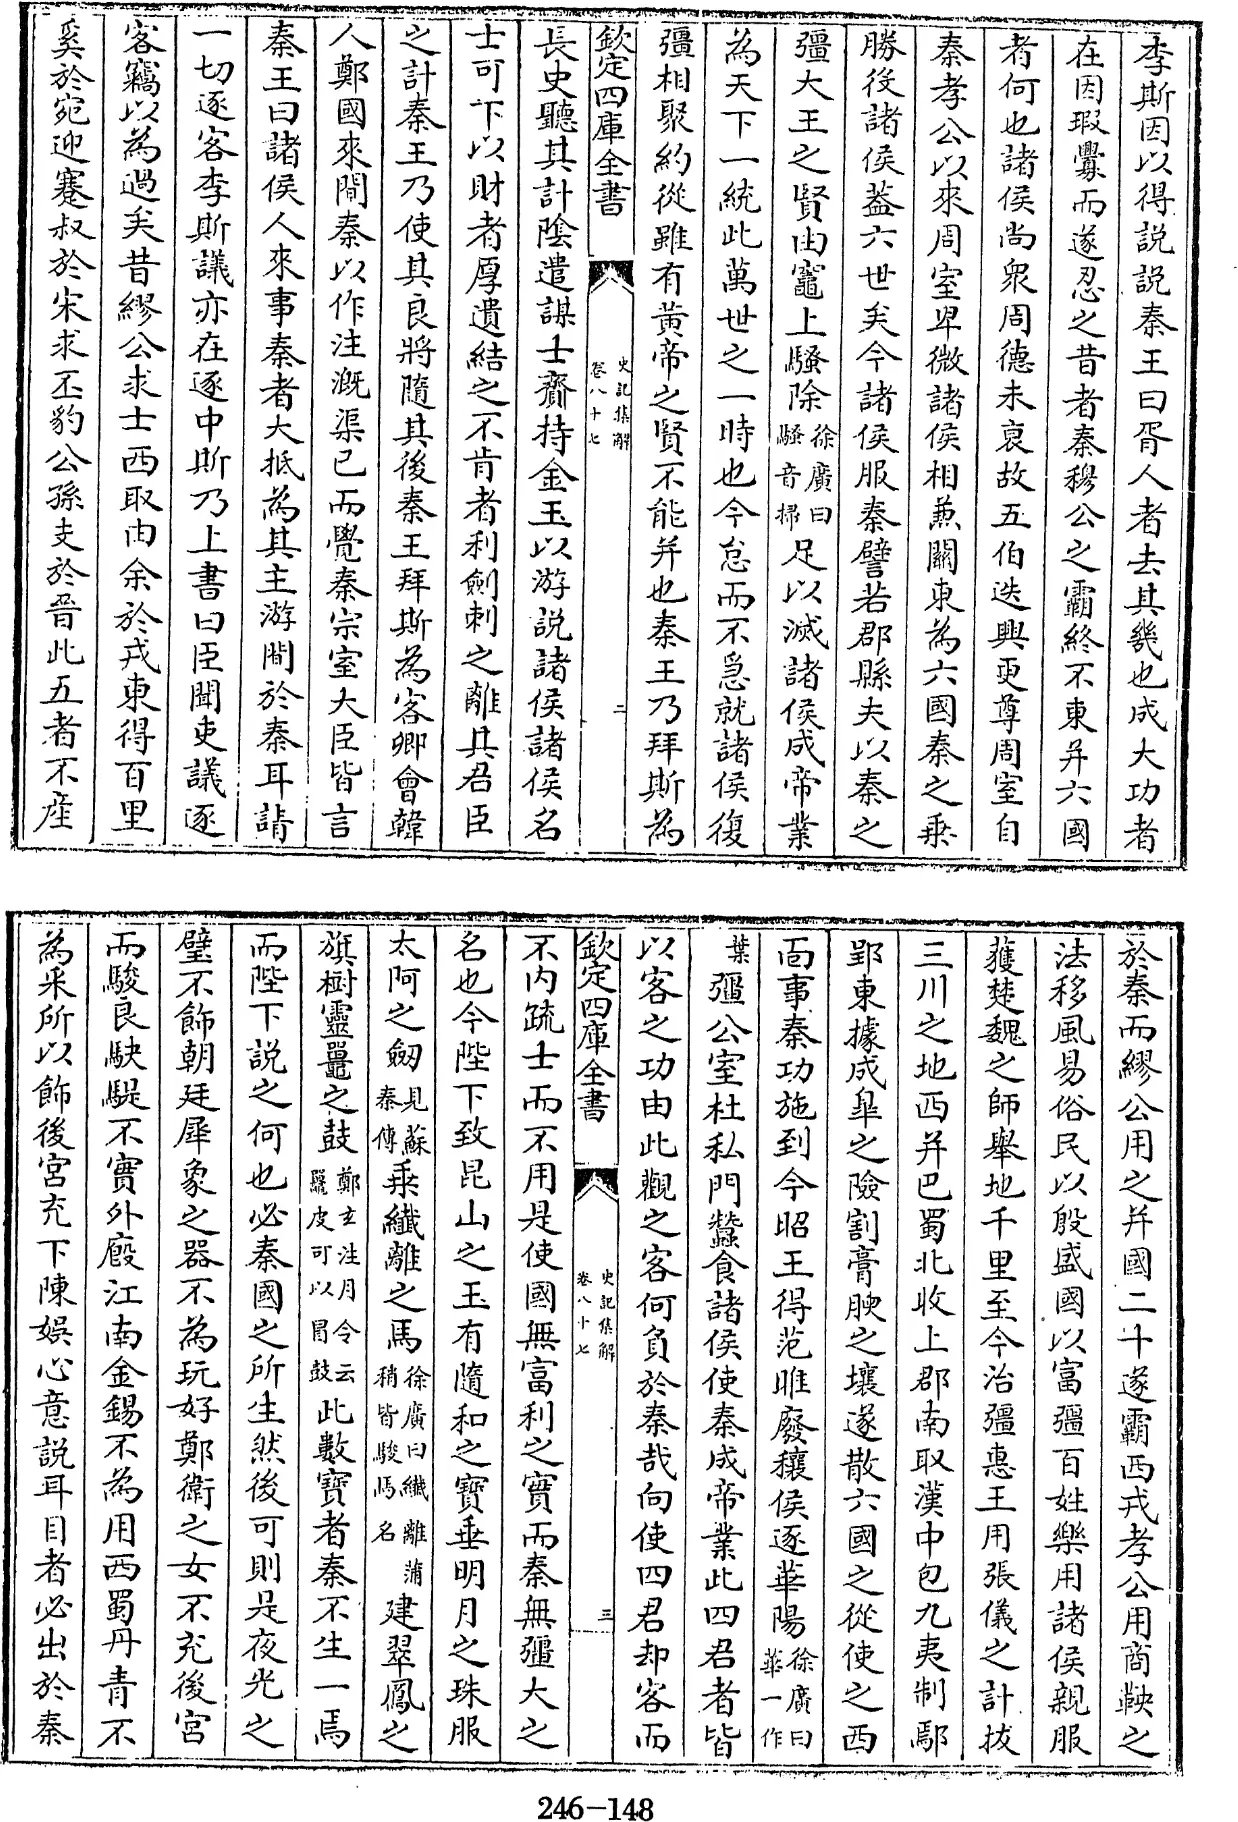 李斯因以得說說秦王曰胥人者去其幾也成大功者
在因瑕釁而遂忍之昔者秦穆公之霸終不東并六國
者何也諸侯尚衆周德未衰故五伯迭興更尊周室自
秦孝公以來周室卑微諸侯相兼關東為六國秦之乗
勝役諸侯蓋六世矣今諸侯服秦譬若郡縣夫以秦之
彊大王之賢由竈上騷除徐廣曰騷音掃足以滅諸侯成帝業
為天下一統此萬世之一時也今怠而不急就諸侯復
彊相聚約從雖有黄帝之賢不能并也秦王乃拜斯為
欽定四庫全書 史記集解 卷八十七 二
長史聽其計陰遣謀士齎持金玉以游說諸侯諸侯名
士可下以財者厚遺結之不肯者利劍刺之離其君臣
之計秦王乃使其良將隨其後秦王拜斯為客卿會韓
人鄭國來閒秦以作注溉渠已而覺秦宗室大臣皆言
秦王曰諸侯人來事秦者大抵為其主游閒於秦耳請
一切逐客李斯議亦在逐中斯乃上書曰臣聞吏議逐
客竊以為過矣昔繆公求士西取由余於戎東得百里
奚於宛迎蹇叔於宋求丕豹公孫支於晉此五者不産
於秦而繆公用之并國二十遂霸西戎孝公用商鞅之
法移風易俗民以殷盛國以富彊百姓樂用諸侯親服
獲楚魏之師舉地千里至今治彊惠王用張儀之計拔
三川之地西并巴蜀北收上郡南取漢中包九夷制鄢
郢東據成皐之險割膏腴之壤遂散六國之從使之西
面事秦功施到今昭王得范雎廢穰侯逐華陽徐廣曰華一作
葉彊公室杜私門蠶食諸侯使秦成帝業此四君者皆
以客之功由此觀之客何負於秦哉向使四君却客而
欽定四庫全書 史記集解 卷八十七 三
不内疏士而不用是使國無富利之實而秦無彊大之
名也今陛下致昆山之玉有隨和之寶垂明月之珠服
太阿之劒見蘇秦傳乗纖離之馬徐廣曰纖離蒲稍皆駿馬名建翠鳳之
旗樹靈鼉之鼓鄭玄注月令云鼉皮可以冒鼓此數寶者秦不生一焉
而陛下説之何也必秦國之所生然後可則是夜光之
璧不飾朝廷犀象之器不為玩好鄭衛之女不充後宮
而駿良駃騠不實外廐江南金錫不為用西蜀丹青不
為采所以飾後宮充下陳娯心意説耳目者必出於秦
246-148